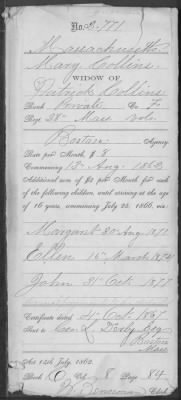 No. 2-771
Massachusetts
Mary Collins
WIDOW OF
Patrick Collins
Rank Private Co. F
Reg. 28" Mass Vols.
Boston Agency.
Rate per Month, $ 8
Commencing 13 Aug. 1862
Additional sum of $2 per Month for each
of the following children, until arriving at the age
of 16 years, commencing July 25, 1866, viz:
Margaret 20 Aug 1871
Ellen 16 March 1874
John 31 Oct 1877
Certificate dated 4 Oct. 1867
Sent to Geo. L. Esq
Boston
Mass
Act 14th July, 1862.
Book Vol. 8 Page 84
Clerk